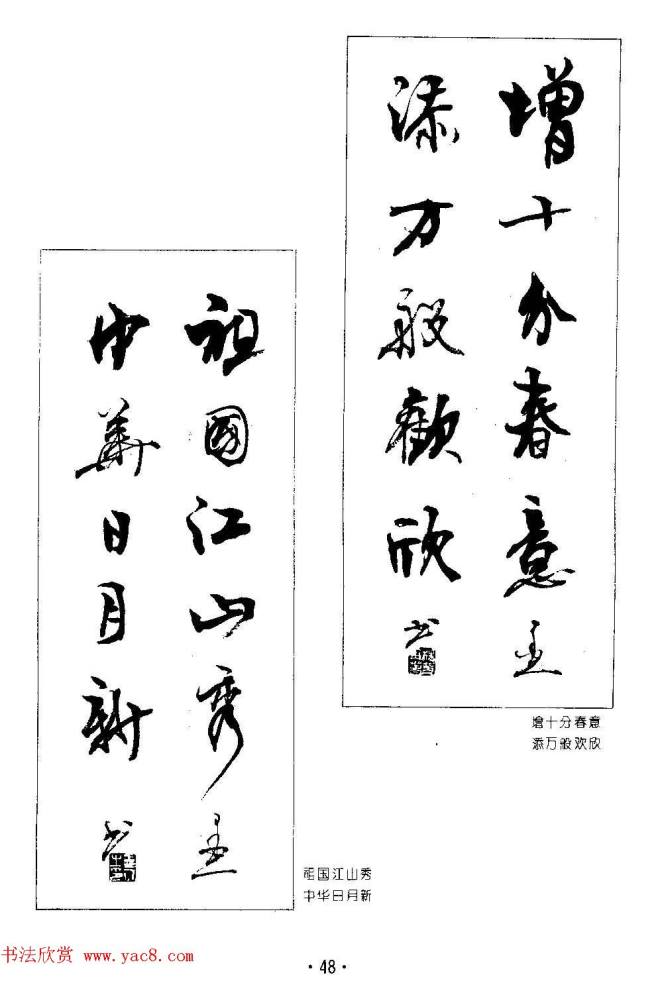 增十分春意
添万般歡欣
书
增十分春意
添万般欢欣
祖國江山秀
中華日月新
书
祖国江山秀
中华日月新
·48·
书法欣赏 www.yac8.com